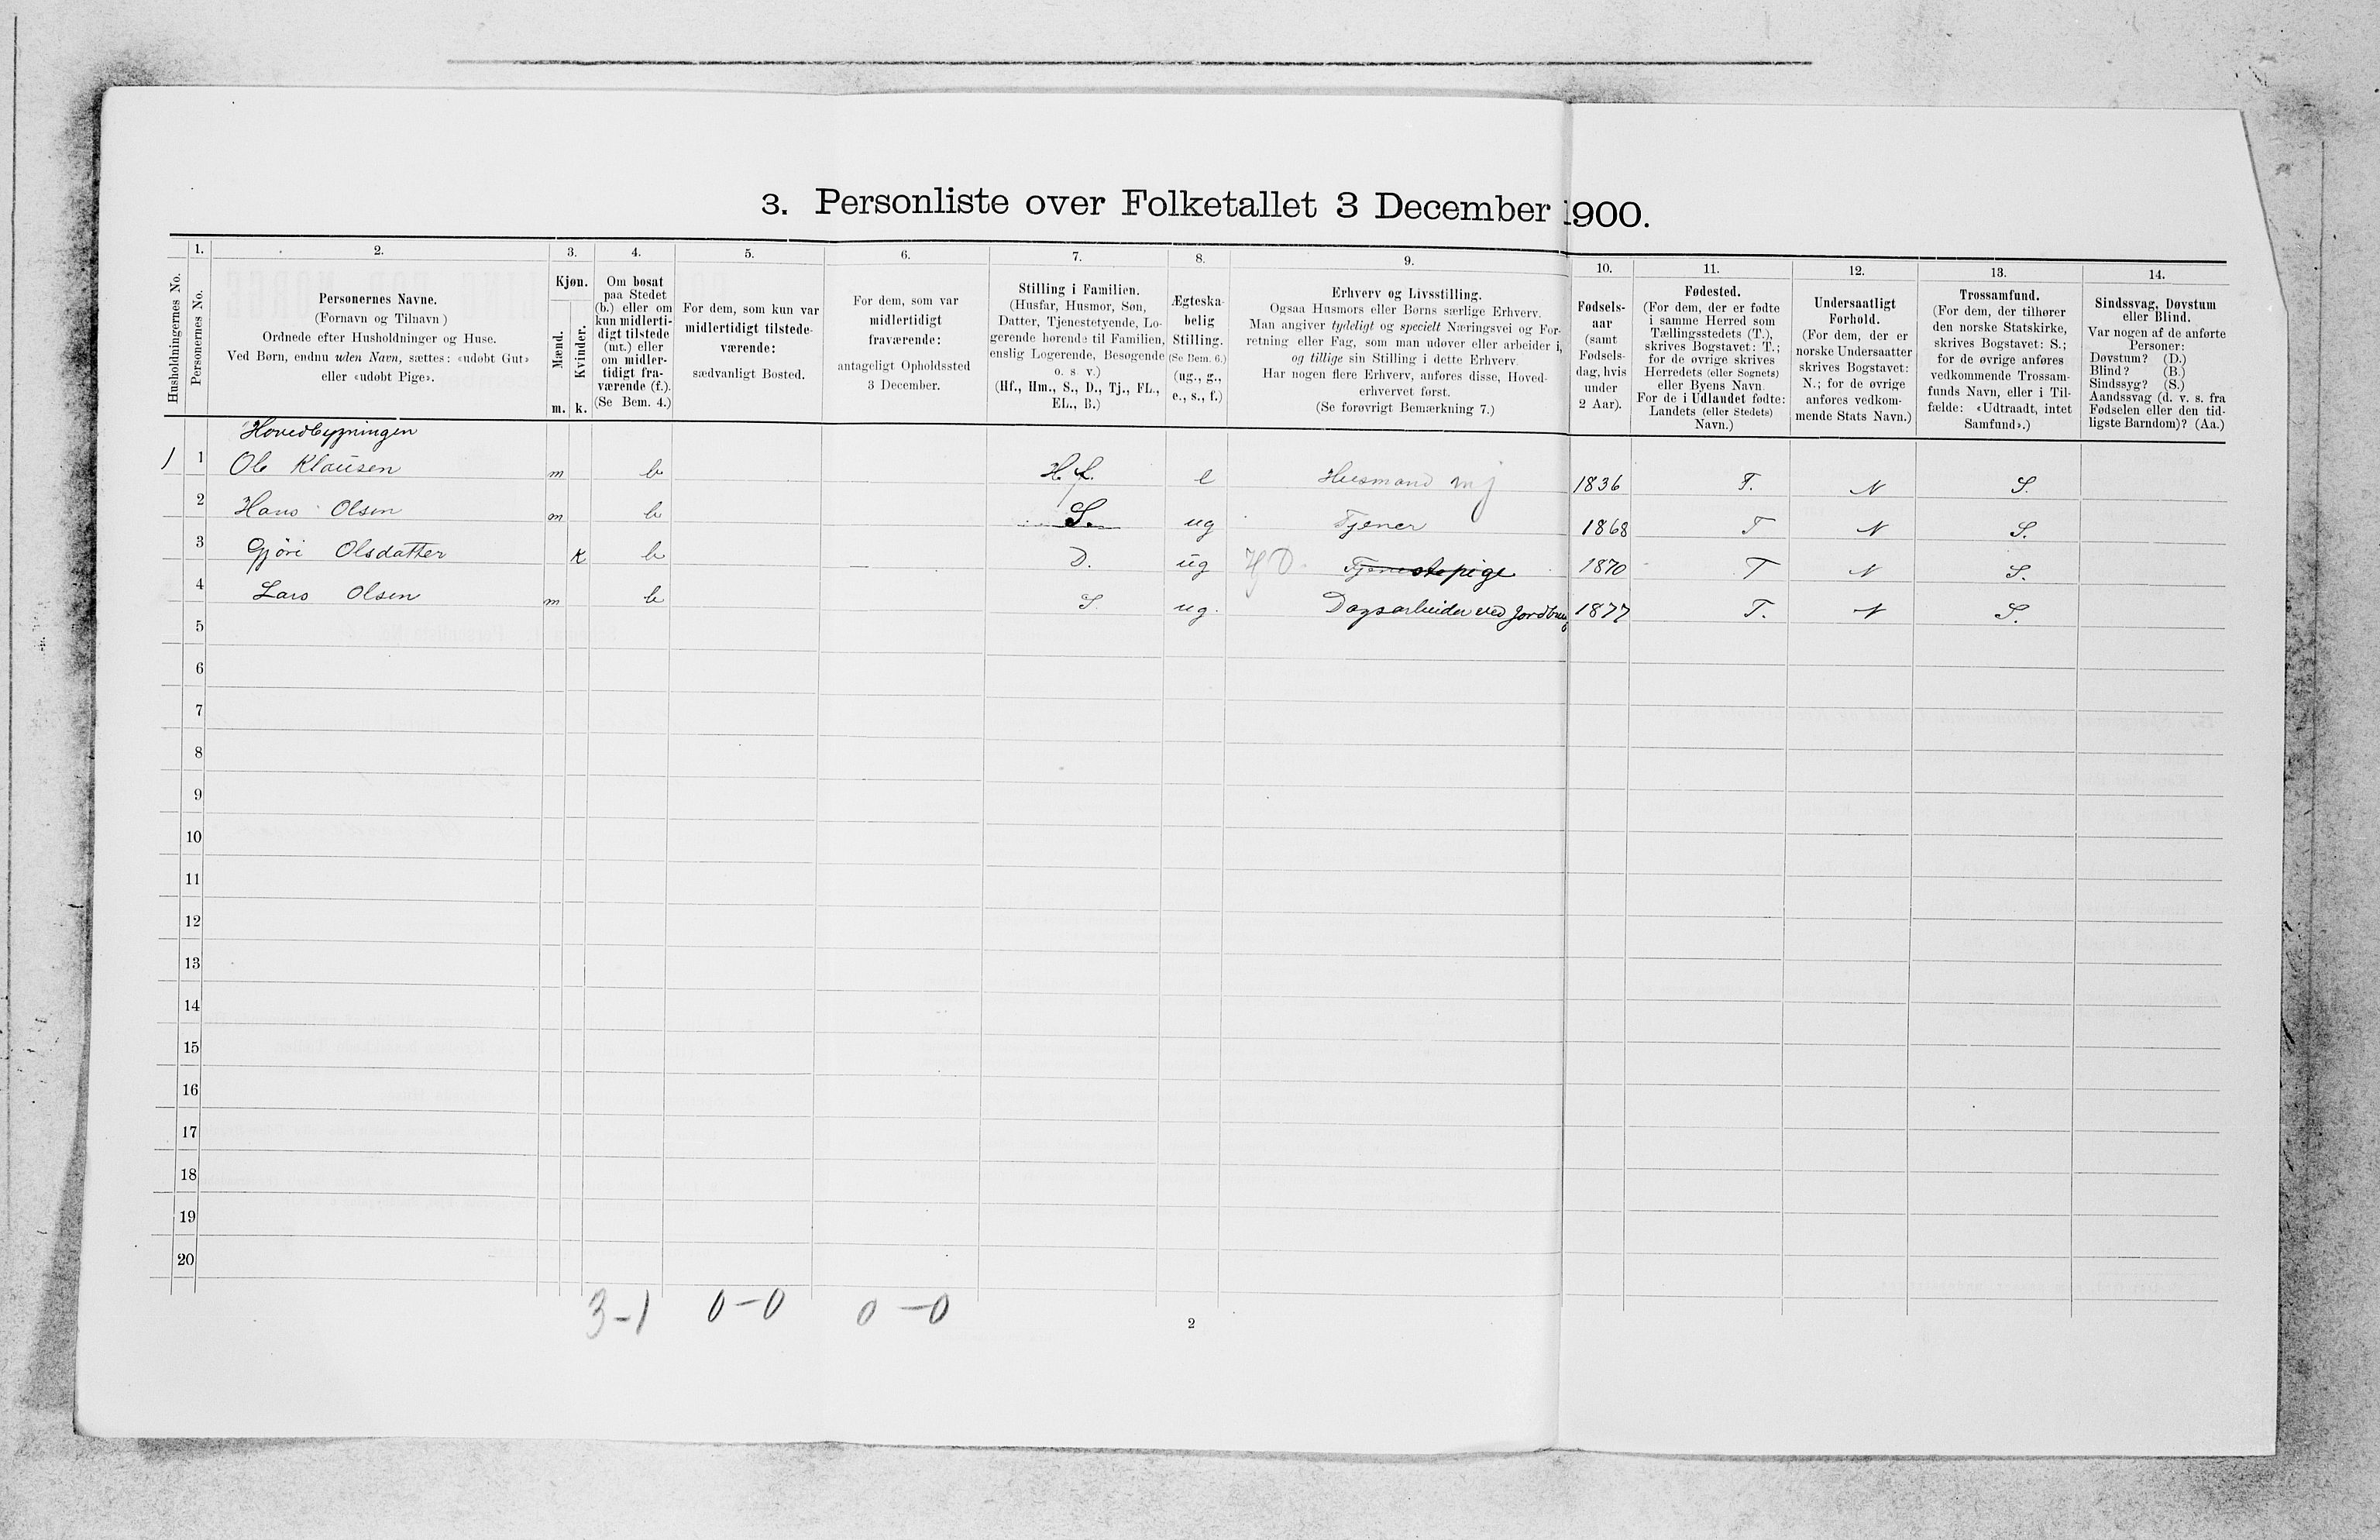 3. Personliste over Folketallet 3 December 1900.
1. 2. 3. 4. 5. 6. 7. 8. 9. 10. 11. 12. 13. 14.
Husholdningernes No.
Personernes No.
Personernes Navne.
(Fornavn og Tilnavn)
Ordnede efter Husholdninger og Huse.
Ved Børn, endnu uden Navn, sættes: «udøbt Gut»
eller «udøbt Pige».
Kjøn.
Mænd.
Kvinder.
m. k.
Om bosat
paa Stedet
(b.) eller om
kun midlerti-
digt tilstede
(mt.) eller
om midler-
tidigt fra-
værende (f.).
(Se Bem. 4.)
For dem, som kun var
midlertidigt tilstede-
værende:
sædvanligt Bosted.
For dem, som var
midlertidigt
fraværende:
antageligt Opholdssted
3 December.
Stilling i Familien.
(Husfar, Husmor, Søn,
Datter, Tjenestetyende, Lo-
gerende hørende til Familien,
enslig Logerende, Besøgende
o. s. v.)
(Hf., Hm., S., D., Tj., FL.,
EL., B.)
Ægteska-
belig
Stilling.
(Se Bem. 6.)
(ug., g.,
e., s., f.)
Erhverv og Livsstilling.
Ogsaa Husmors eller Børns særlige Erhverv.
Man angiver tydeligt og specielt Næringsvei og For-
retning eller Fag, som man udøver eller arbeider i,
og tillige sin Stilling i dette Erhverv.
Har nogen flere Erhverv, anføres disse, Hoved-
erhvervet først.
(Se forøvrigt Bemærkning 7.)
Fødsels-
aar
(samt
Fødsels-
dag, hvis
under
2 Aar).
Fødested.
(For dem, der er fødte
i samme Herred som
Tællingsstedets (T.),
skrives Bogstavet: T.;
for de øvrige skrives
Herredets (eller Sognets)
eller Byens Navn.
For de i Udlandet fødte:
Landets (eller Stedets)
Navn.)
Undersaatligt
Forhold.
(For dem, der er
norske Undersaatter
skrives Bogstavet:
N.; for de øvrige
anføres vedkom-
mende Stats Navn.)
Trossamfund.
(For dem, der tilhører
den norske Statskirke,
skrives Bogstavet: S.;
for de øvrige anføres
vedkommende Trossam-
funds Navn, eller i Til-
fælde: «Udtraadt, intet
Samfund».)
Sindssvag, Døvstum
eller Blind.
Var nogen af de anførte
Personer:
Døvstum? (D.)
Blind? (B.)
Sindssyg? (S.)
Aandssvag (d. v. s. fra
Fødselen eller den tid-
ligste Barndom)? (Aa.)
Hovedbygningen
1 1 Ole Klausen m b H.f. e Husmand mj 1836 T. N S.
2 Hans Olsen m b S. ug Tjener 1868 T N S.
3 Gjöri Olsdatter k b — D. ug HD. Tjenestepige 1870 T N S.
4 Lars Olsen m b S. ug. Dagsarbeider ved Jordbrug 1877 T. N S.
5
6
7
8
9
10
11
12
13
14
15
16
17
18
19
20
3-1 0-0 0-0
2